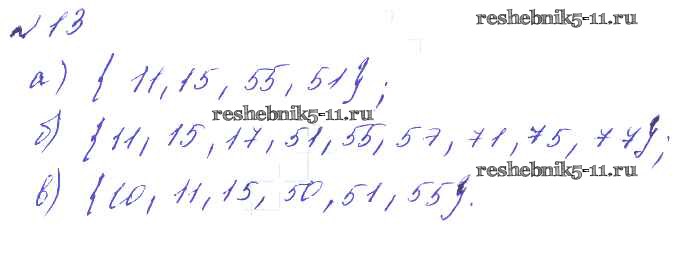 №13 reshebnik5-11.ru
а) { 11, 15, 55, 51};
reshebnik5-11.ru
б) {11, 15, 17, 51, 55, 57, 71, 75, 77};
reshebnik5-11.ru
в) {10, 11, 15, 50, 51, 55}.